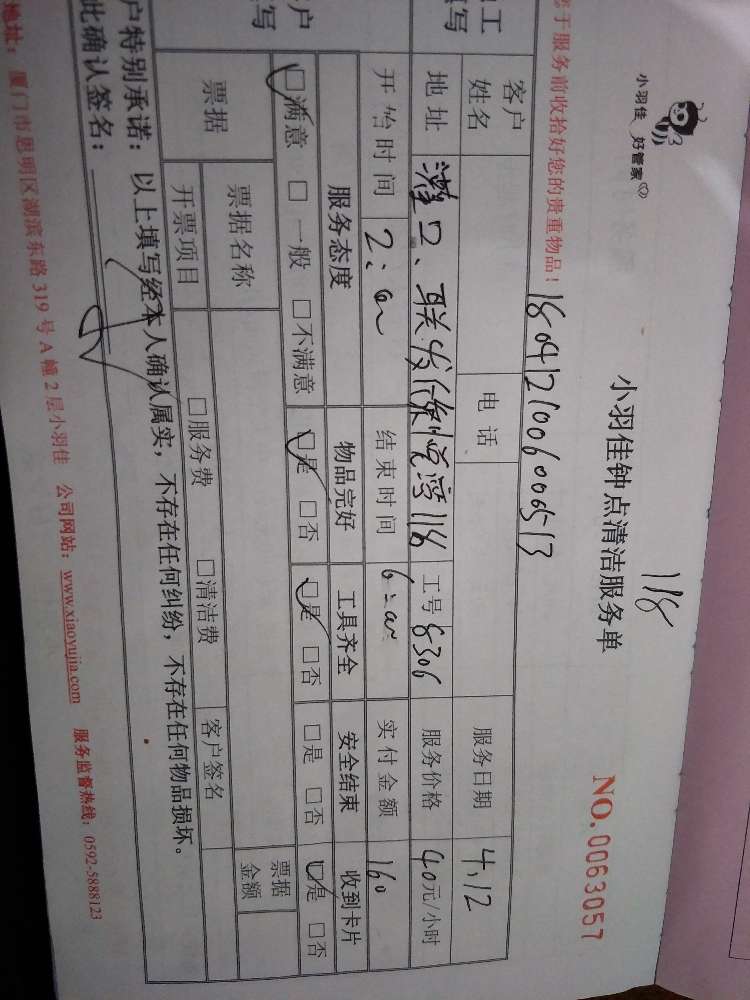 小羽佳 好管家
小羽佳钟点清洁服务单
118
NO.0063057
于服务前收拾好您的贵重物品！
18041210060006513
工
写
客户
姓名
电话
服务日期
4.12
地址
联发
118
工号
8306
服务价格
40元/小时
开始时间
2:00
结束时间
6:00
实付金额
160
户
写
服务态度
物品完好
工具齐全
安全结束
收到卡片
☑满意 □一般 □不满意
☑是 □否
☑是 □否
□是 □否
☑是 □否
票据
票据名称
票据
金额
开票项目
□服务费 □清洁费
客户签名
户特别承诺：以上填写经本人确认属实，不存在任何纠纷，不存在任何物品损坏。
此确认签名：
地址：厦门市思明区湖滨东路319号A幢2层小羽佳 公司网站：www.xiaoyujia.com 服务监督热线：0592-5888123